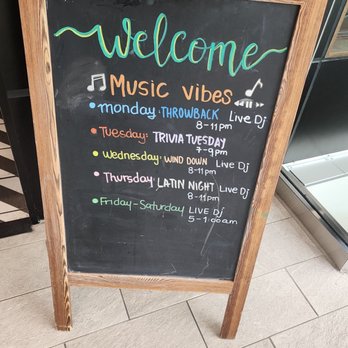 welcome
Music vibes
monday · THROWBACK Live Dj
8-11pm
Tuesday: TRIVIA TUESDAY
7-9pm
Wednesday: WIND DOWN Live Dj
8-11pm
Thursday LATIN NIGHT Live Dj
8-11pm
Friday-Saturday LIVE Dj
5-1:00am